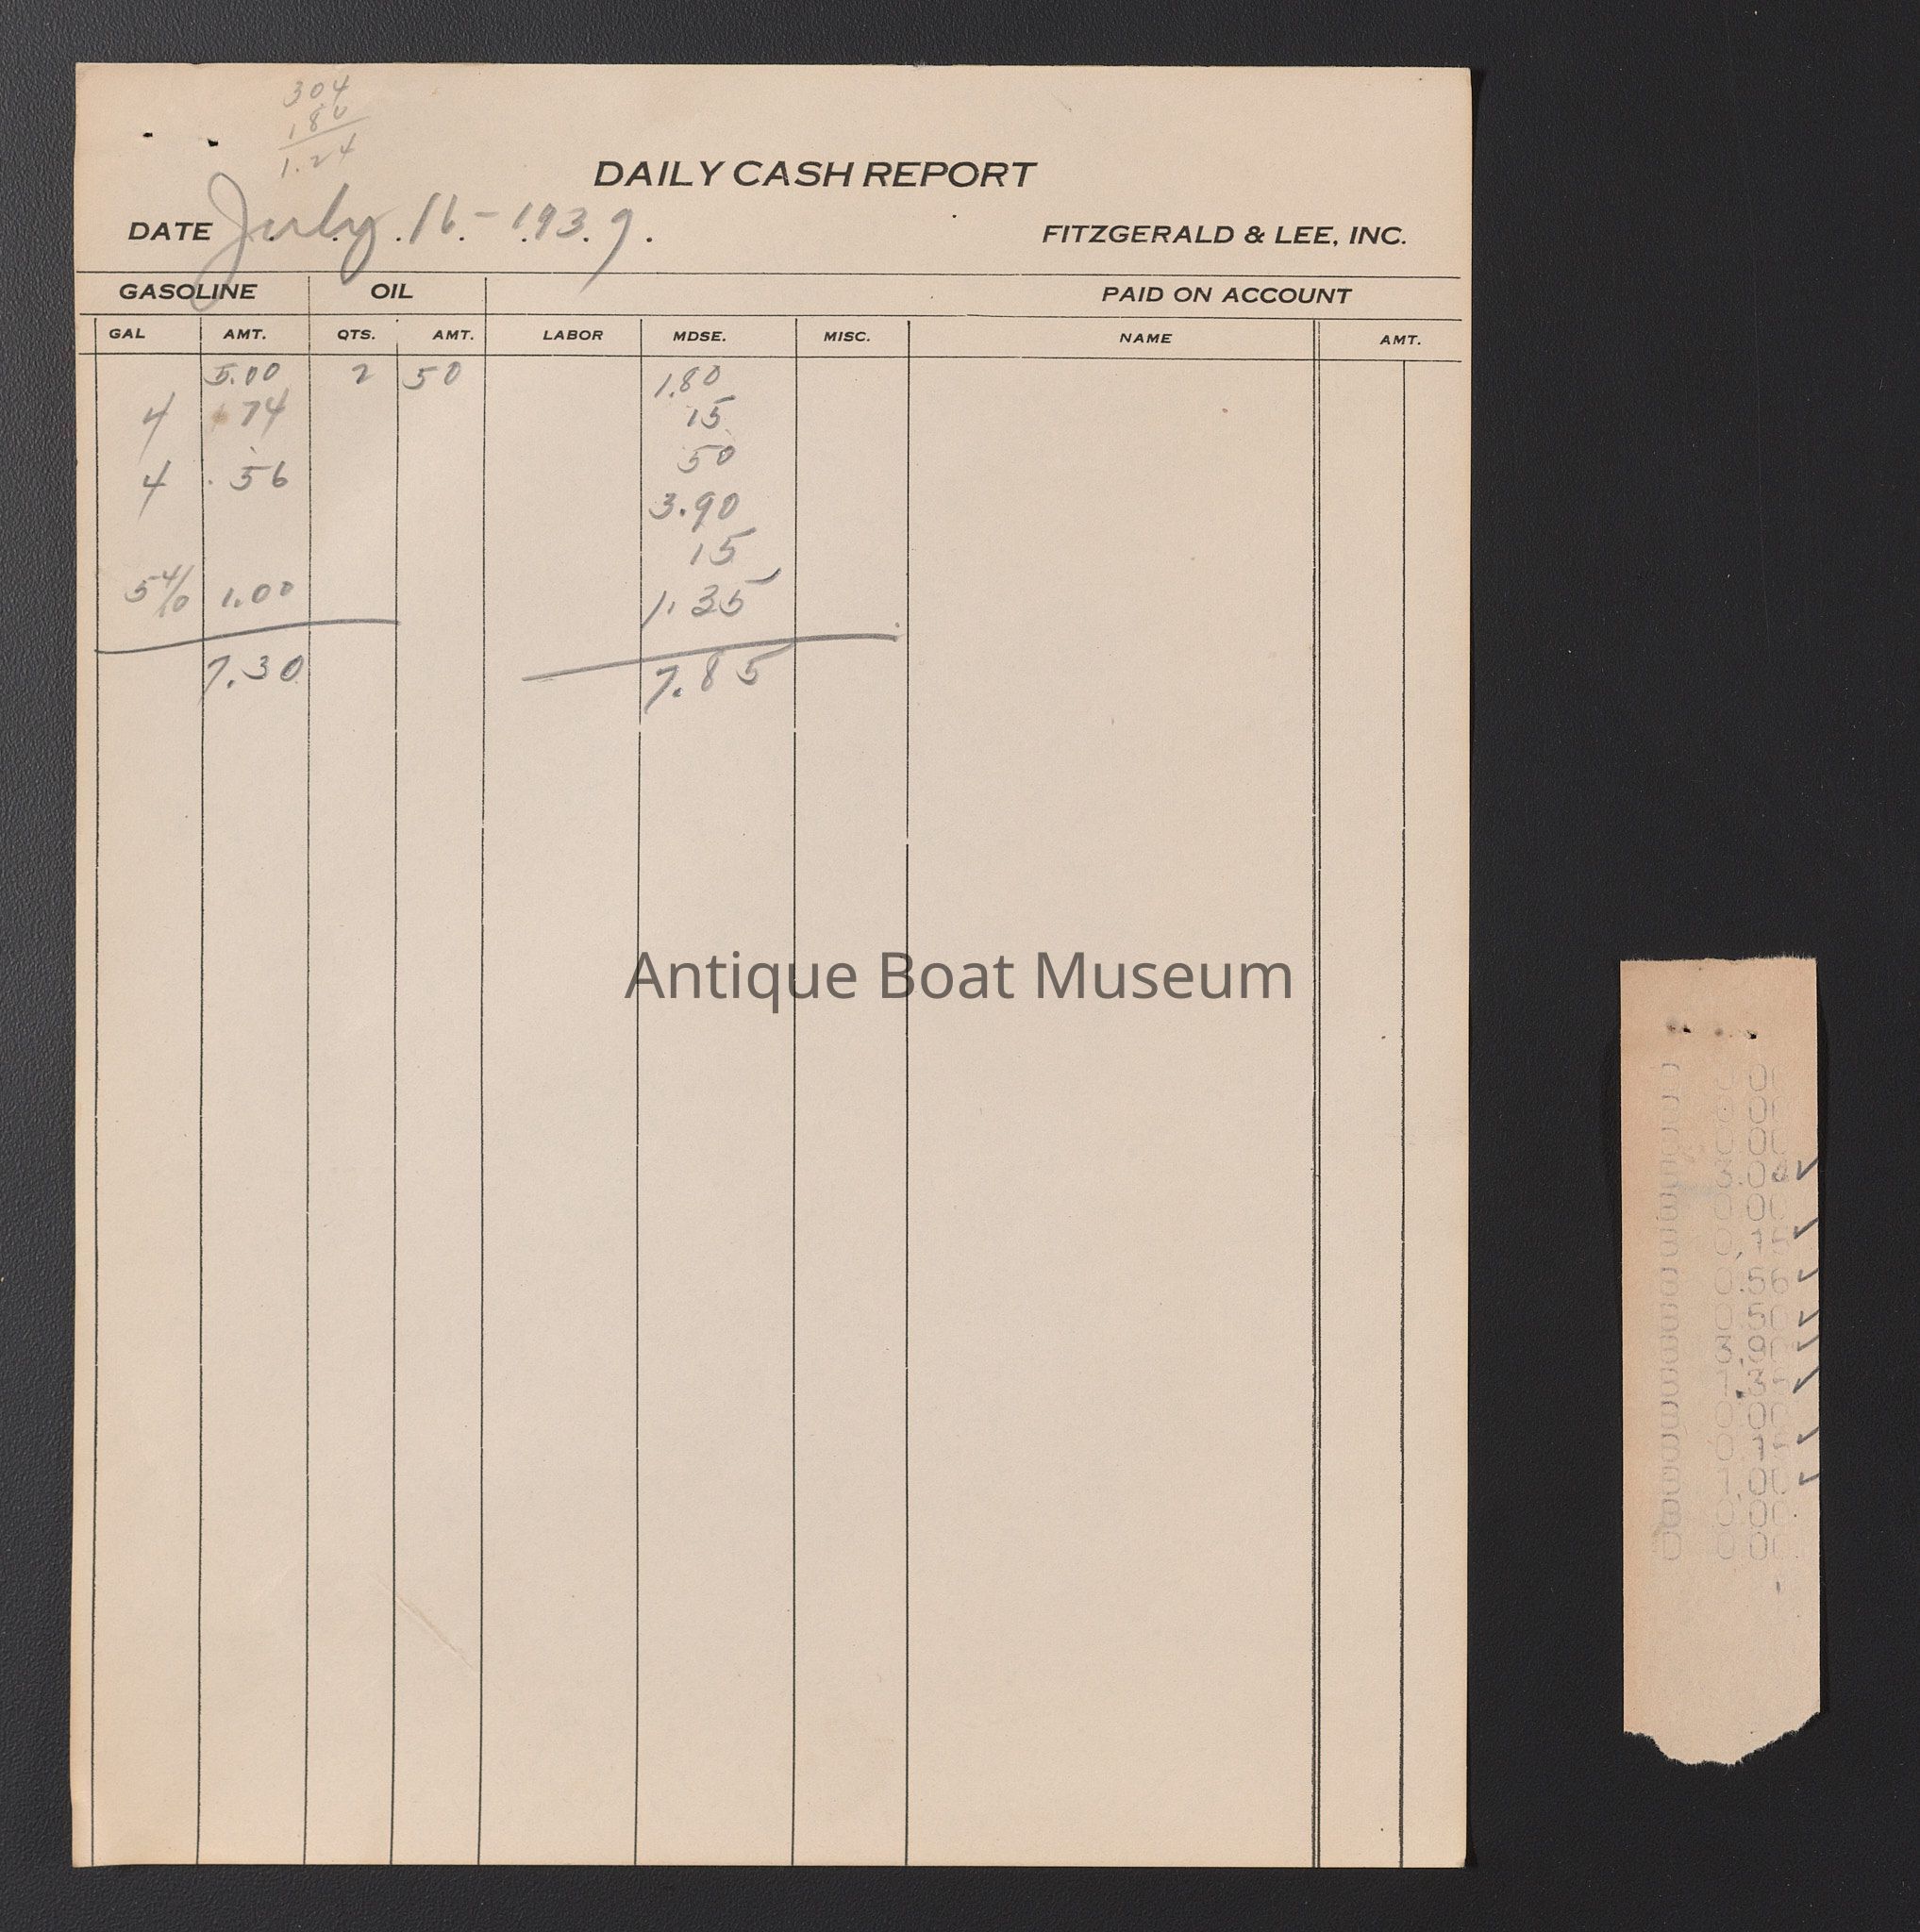 304
180
1.24
DAILY CASH REPORT
DATE July 16 - 1939.
FITZGERALD & LEE, INC.
GASOLINE OIL PAID ON ACCOUNT
GAL AMT. QTS. AMT. LABOR MDSE. MISC. NAME AMT.
5.00 2 50 1.80
4 .74 15
50
4 .56
3.90
15
5 4/10 1.00 1.35
7.30 7.85
Antique Boat Museum
0.00
0.00
3.04 ✓
0.00
0.15 ✓
0.56 ✓
0.50 ✓
3.90 ✓
1.35 ✓
0.00
0.15 ✓
1.00 ✓
0.00
0.00